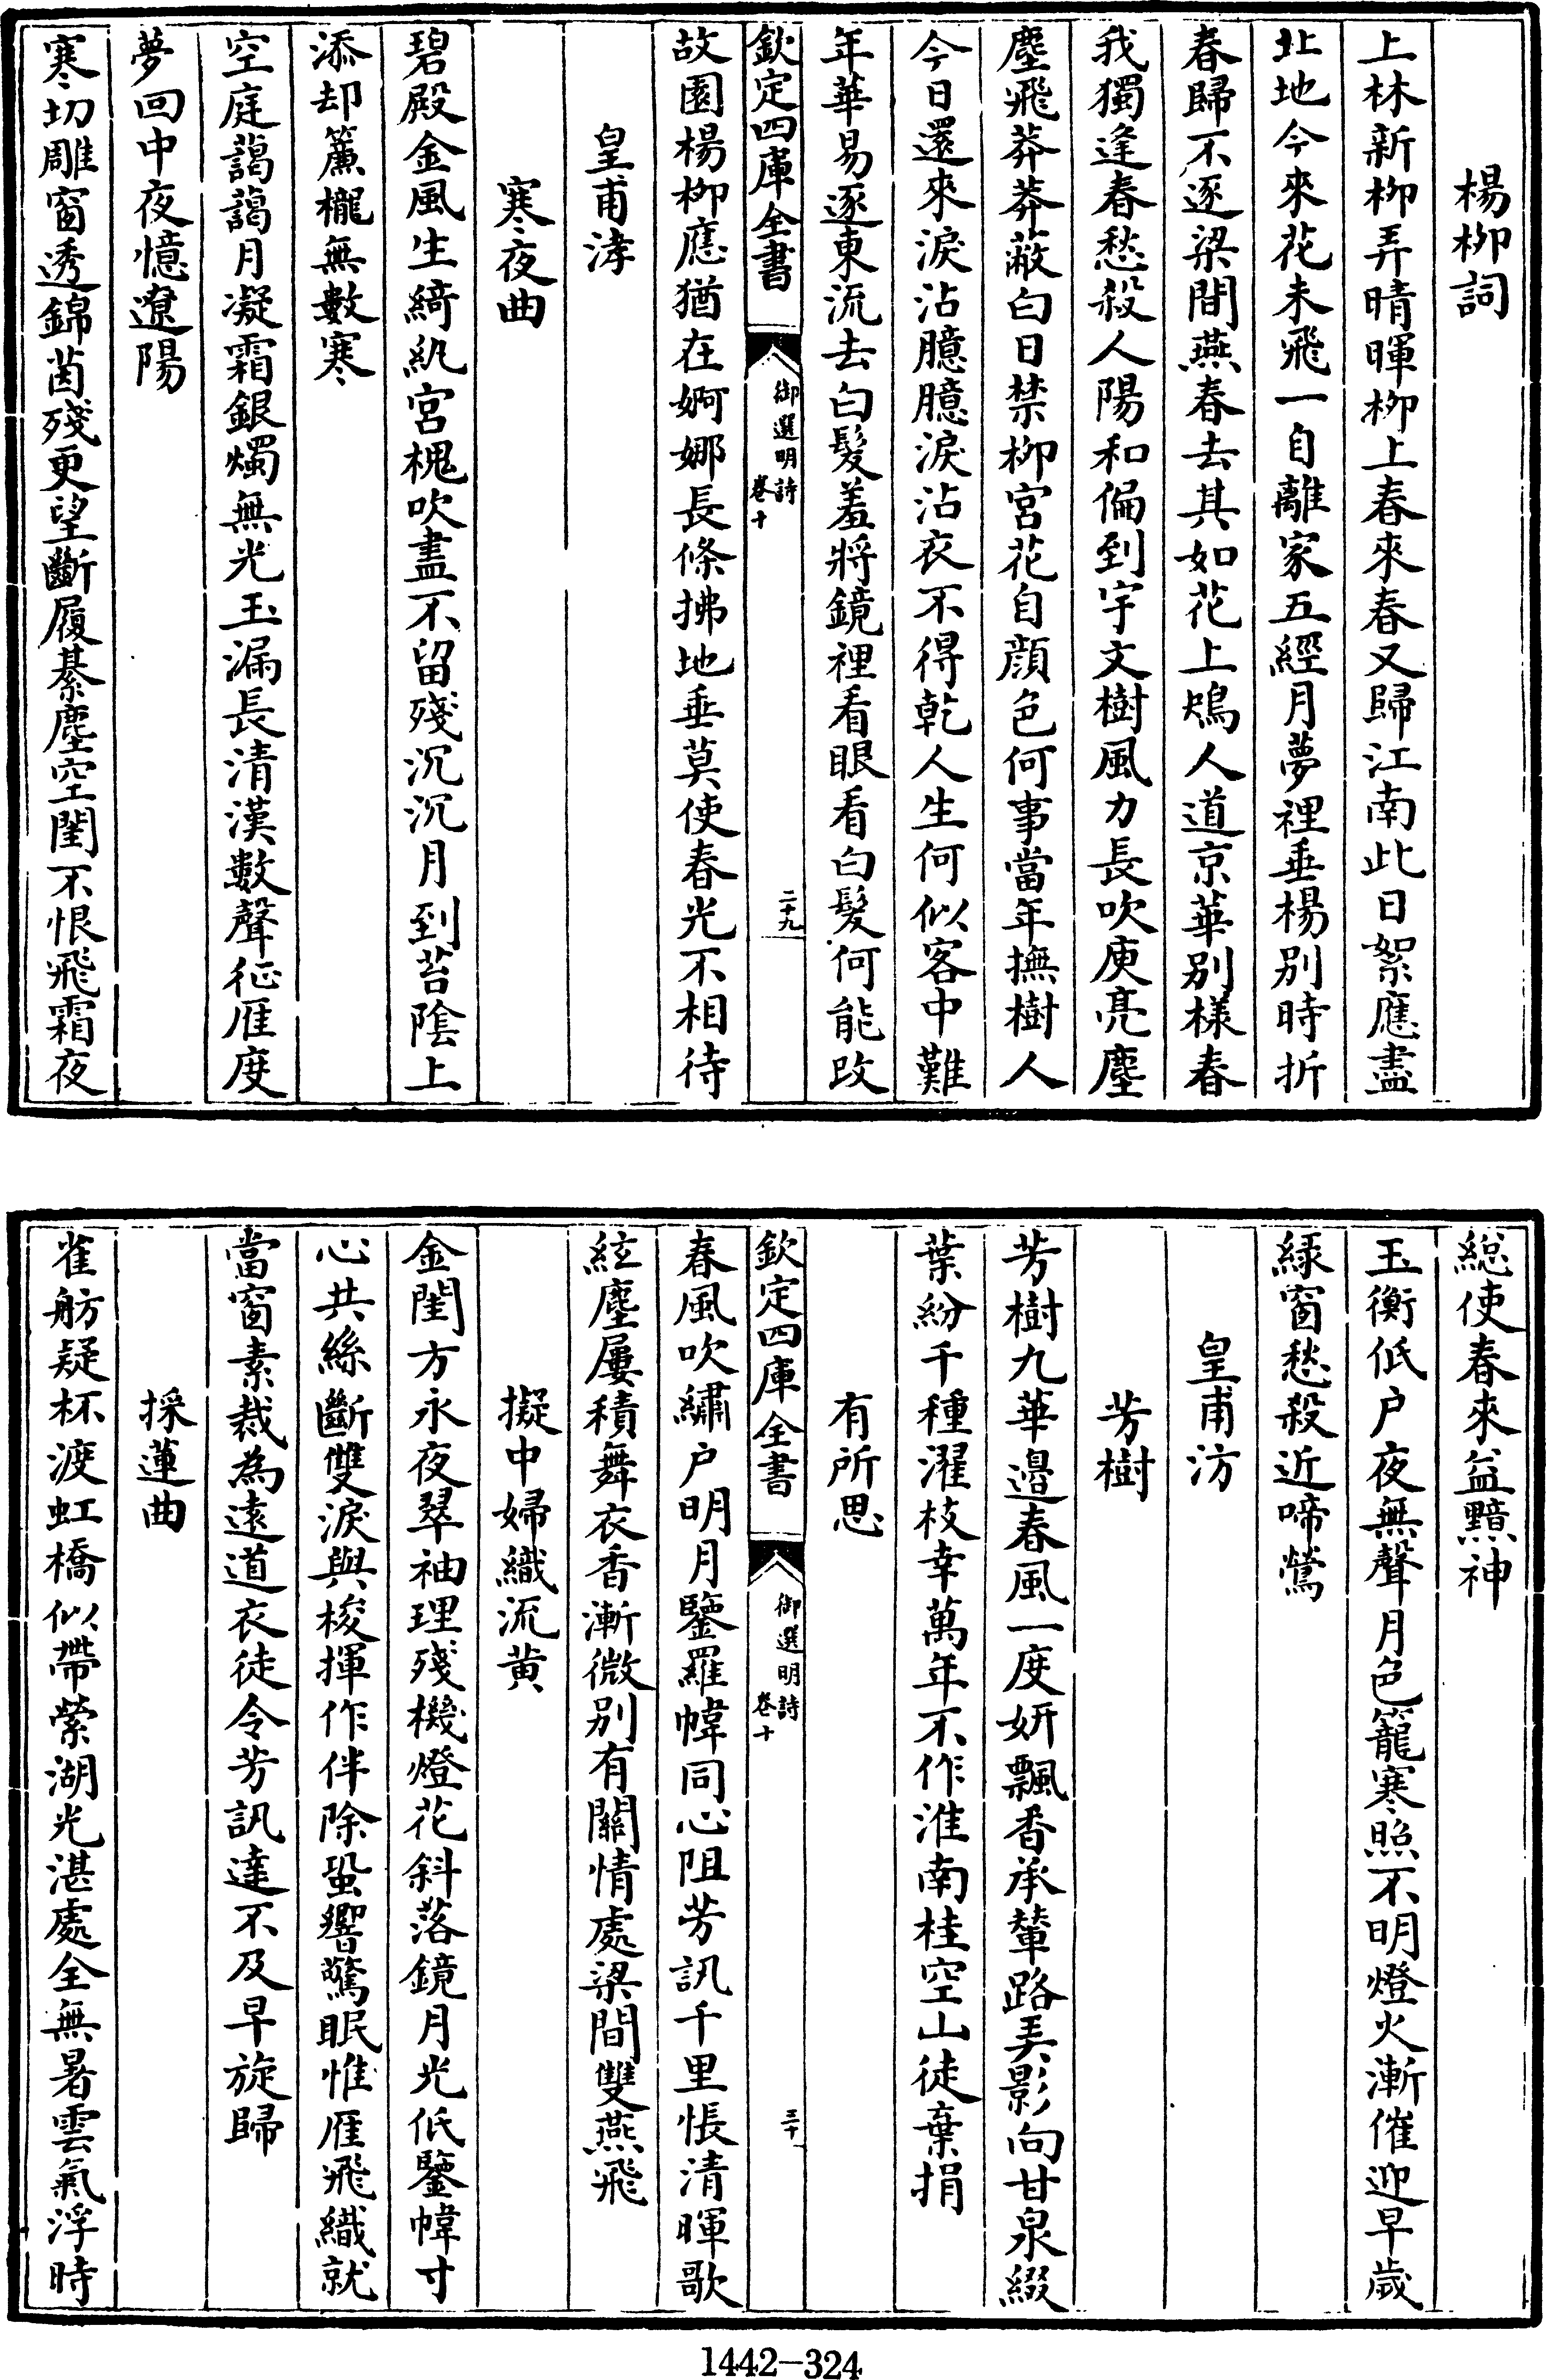 楊柳詞
上林新柳弄晴暉柳上春來春又歸江南此日絮應盡
北地今來花未飛一自離家五經月夢裡垂楊别時折
春歸不逐梁間燕春去其如花上鴆人道京華别樣春
我獨逢春愁殺人陽和偏到宇文樹風力長吹庾亮塵
塵飛莽莽蔽白日禁柳宮花自顔色何事當年撫樹人
今日還來淚沾臆臆淚沾衣不得乾人生何似客中難
年華易逐東流去白髮羞將鏡裡看眼看白髮何能改
欽定四庫全書
御選明詩
卷十
二十九
故園楊柳應猶在婀娜長條拂地垂莫使春光不相待
皇甫涍
寒夜曲
碧殿金風生綺紈宮槐吹盡不留殘沉沉月到苔陰上
添却簾櫳無數寒
空庭藹藹月凝霜銀燭無光玉漏長清漢數聲征雁度
夢回中夜憶遼陽
寒切雕窗透錦茵殘更望斷履綦塵空閨不恨飛霜夜
縂使春來益黯神
玉衡低户夜無聲月色籠寒照不明燈火漸催迎早歲
緑窗愁殺近啼鶯
皇甫汸
芳樹
芳樹九華邉春風一度妍飄香承輦路弄影向甘泉綴
葉紛千種濯枝幸萬年不作淮南桂空山徒棄捐
有所思
欽定四庫全書
御選明詩
卷十
三十
春風吹繡户明月鑒羅幃同心阻芳訊千里悵清暉歌
絃塵屢積舞衣香漸微别有關情處梁間雙燕飛
擬中婦織流黄
金閨方永夜翠袖理殘機燈花斜落鏡月光低鑒幃寸
心共絲斷雙淚與梭揮作伴除蛩響驚眠惟雁飛織就
當窗素裁為遠道衣徒令芳訊達不及早旋歸
採蓮曲
雀舫疑杯渡虹橋似帶縈湖光湛處全無暑雲氣浮時
1442-324